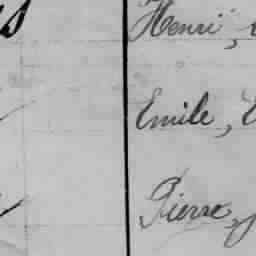 Henri,
Emile,
Pierre,